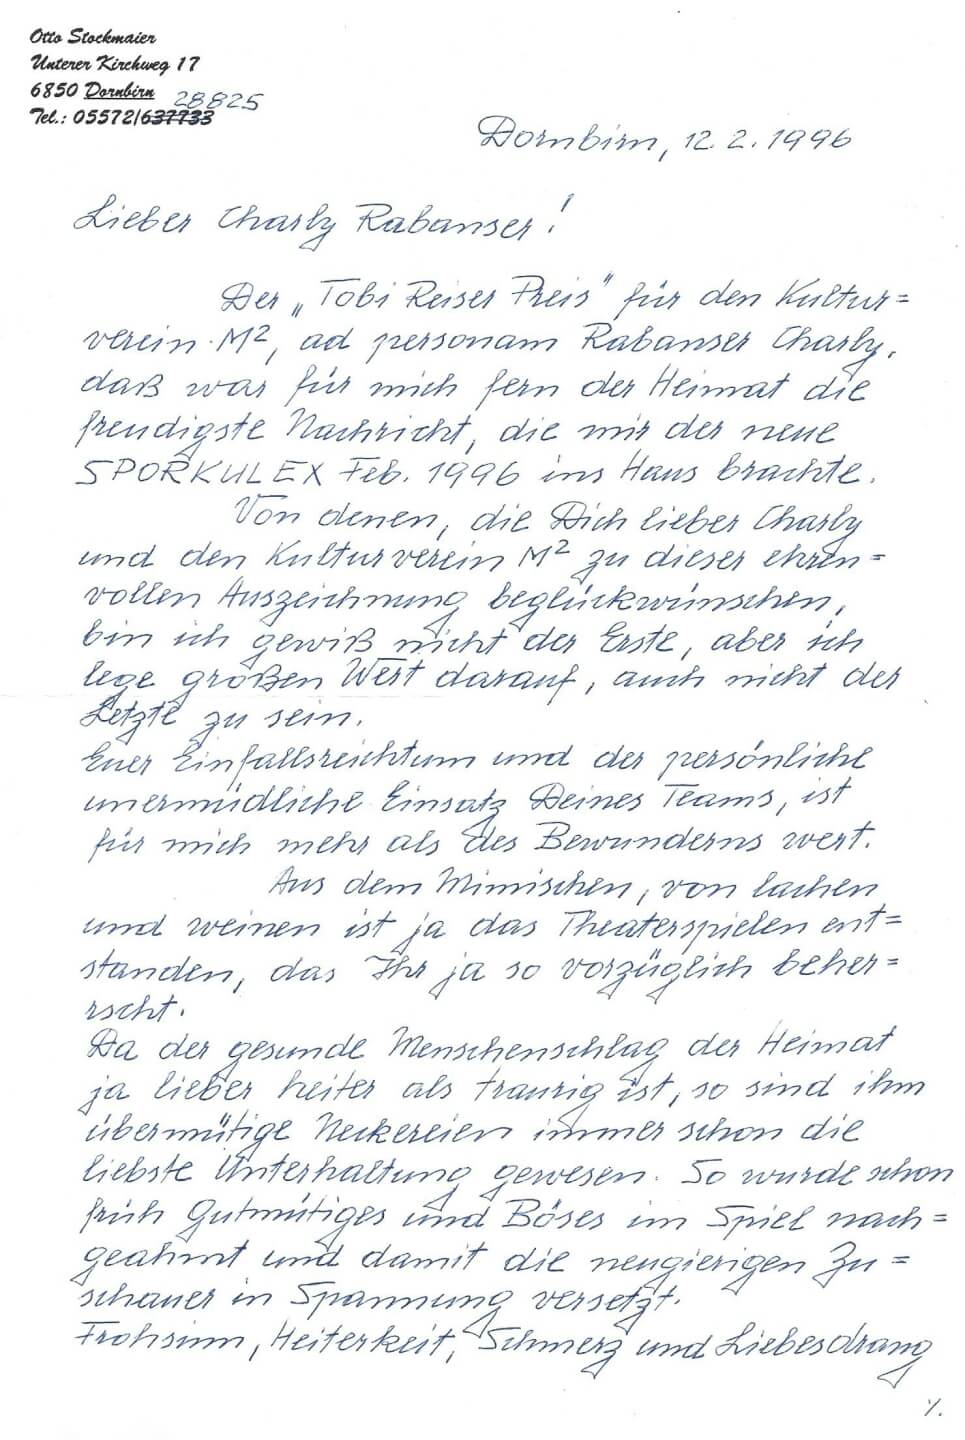 Otto Stockmaier
Unterer Kirchweg 17
6850 Dornbirn
28825
Tel.: 05572/637733
Dornbirn, 12.2.1996
Lieber Charly Rabanser!
Der „Tobi Reiser Preis" für den Kultur=
verein M², ad personam Rabanser Charly,
daß war für mich fern der Heimat die
freudigste Nachricht, die mir der neue
SPORKULEX Feb. 1996 ins Haus brachte.
Von denen, die Dich lieber Charly
und den Kulturverein M² zu dieser ehren=
vollen Auszeichnung beglückwünschen,
bin ich gewiß nicht der Erste, aber ich
lege großen Wert darauf, auch nicht der
Letzte zu sein.
Euer Einfallsreichtum und der persönliche
unermüdliche Einsatz Deines Teams, ist
für mich mehr als des Bewunderns wert.
Aus dem Mimischen, von lachen
und weinen ist ja das Theaterspielen ent=
standen, das Ihr ja so vorzüglich beher=
rscht.
Da der gesunde Menschenschlag der Heimat
ja lieber heiter als traurig ist, so sind ihm
übermütige Neckereien immer schon die
liebste Unterhaltung gewesen. So wurde schon
früh Gutmütiges und Böses im Spiel nach=
geahmt und damit die neugierigen Zu=
schauer in Spannung versetzt.
Frohsinn, Heiterkeit, Schmerz und Liebesdrang
./.